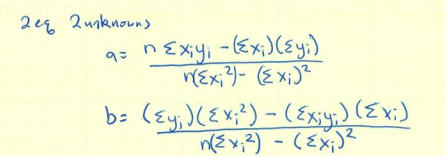 2eq 2unknowns
a= n Σxᵢyᵢ -(Σxᵢ)(Σyᵢ)
n(Σxᵢ²)- (Σxᵢ)²
b= (Σyᵢ)(Σxᵢ²) - (Σxᵢyᵢ)(Σxᵢ)
n(Σxᵢ²) - (Σxᵢ)²